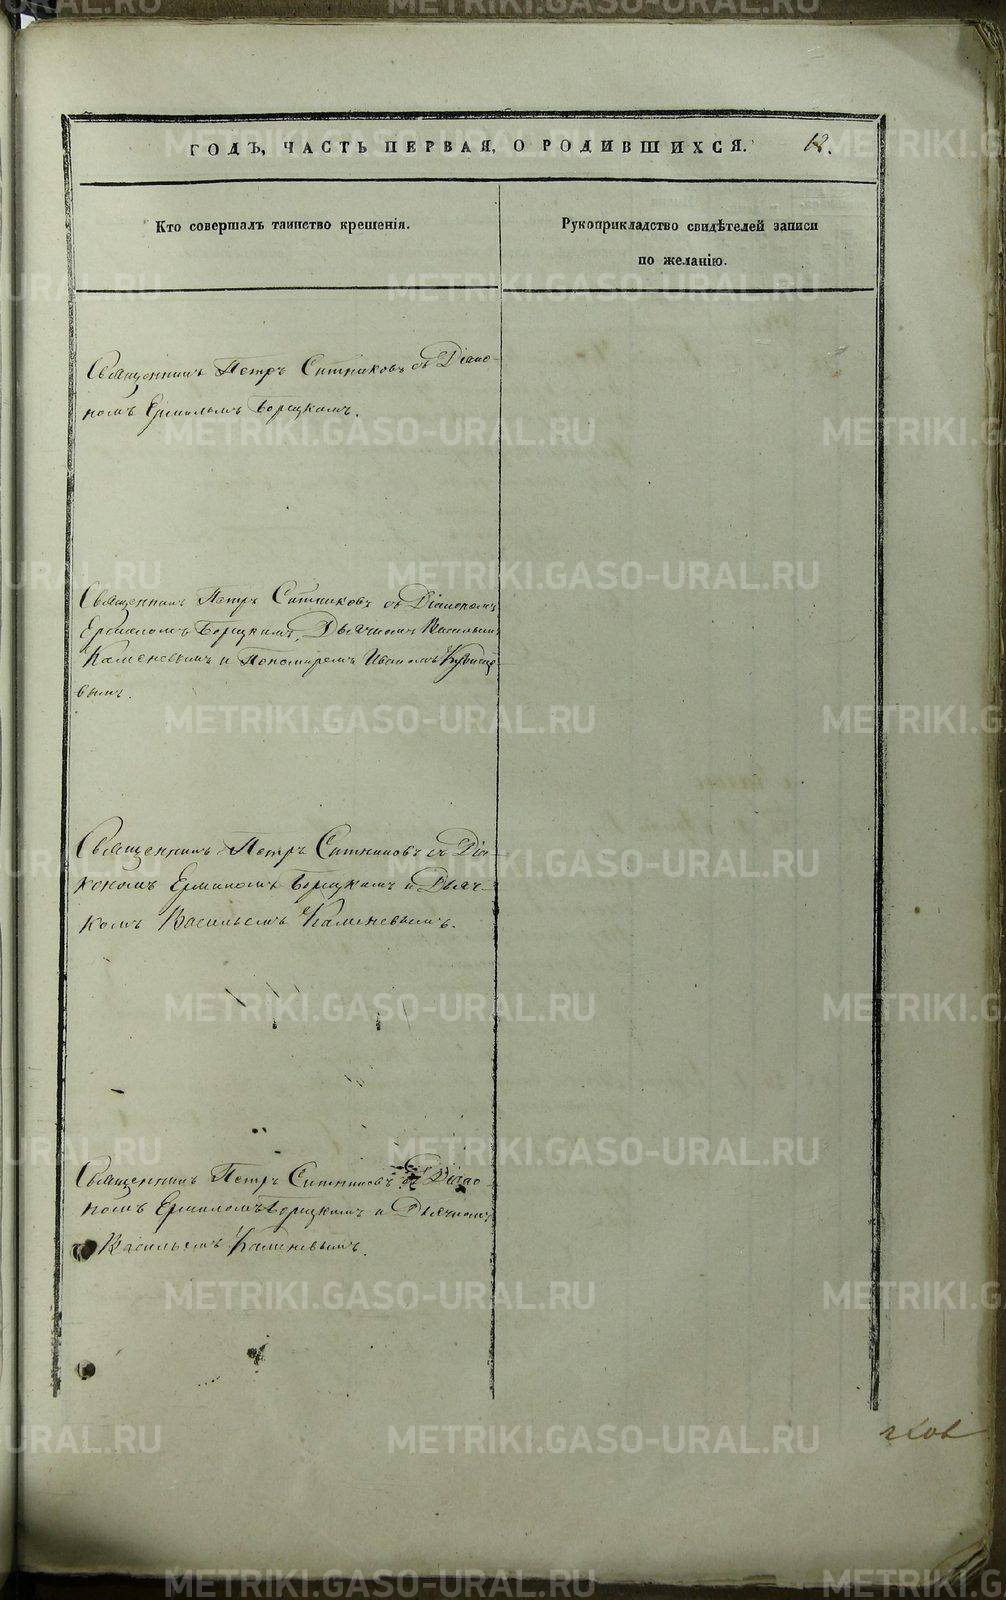 ГОДЪ, ЧАСТЬ ПЕРВАЯ, О РОДИВШИХСЯ. 12.
Кто совершалъ таинство крещенія.
Рукоприкладство свидѣтелей записи
по желанію.
Священникъ Петръ Ситниковъ съ Діако-
номъ Ермиломъ Борецкимъ.
Священникъ Петръ Ситниковъ съ Діакономъ
Ермиломъ Борецкимъ, Дьячкомъ Васильемъ
Каменевымъ и Пономаремъ Иваномъ
вымъ.
Священникъ Петръ Ситниковъ съ Діа-
кономъ Ермиломъ Борецкимъ и Дьяч-
комъ Васильемъ Каменевымъ.
Священникъ Петръ Ситниковъ съ Діако-
номъ Ермиломъ Борецкимъ и Дьячкомъ
Васильемъ Каменевымъ.
METRIKI.GASO-URAL.RU